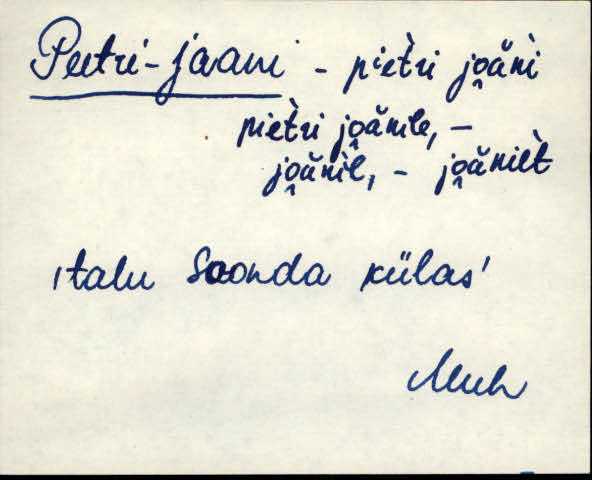 Peetri-jaani - piètri jo̭ăni
piètri jo̭ănile, -
jo̭ănil, - jo̭ănilt
'talu Soonda külas'
Muh